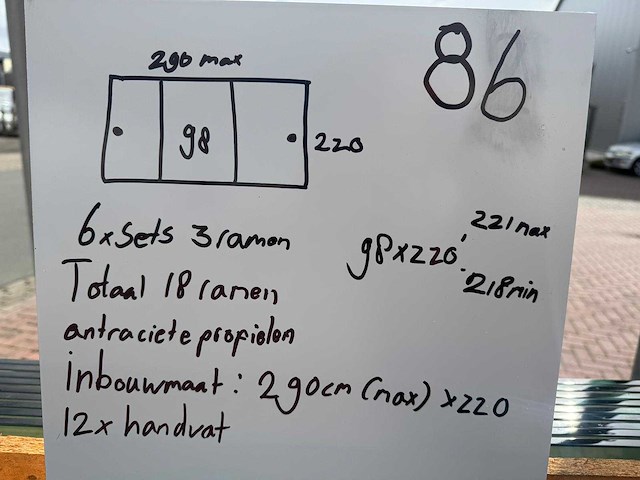 86
290 max
98
220
6x sets 3 ramen
98x220
221 max
218 min
Totaal 18 ramen
antraciete propielen
inbouwmaat: 290cm (max) x220
12x handvat